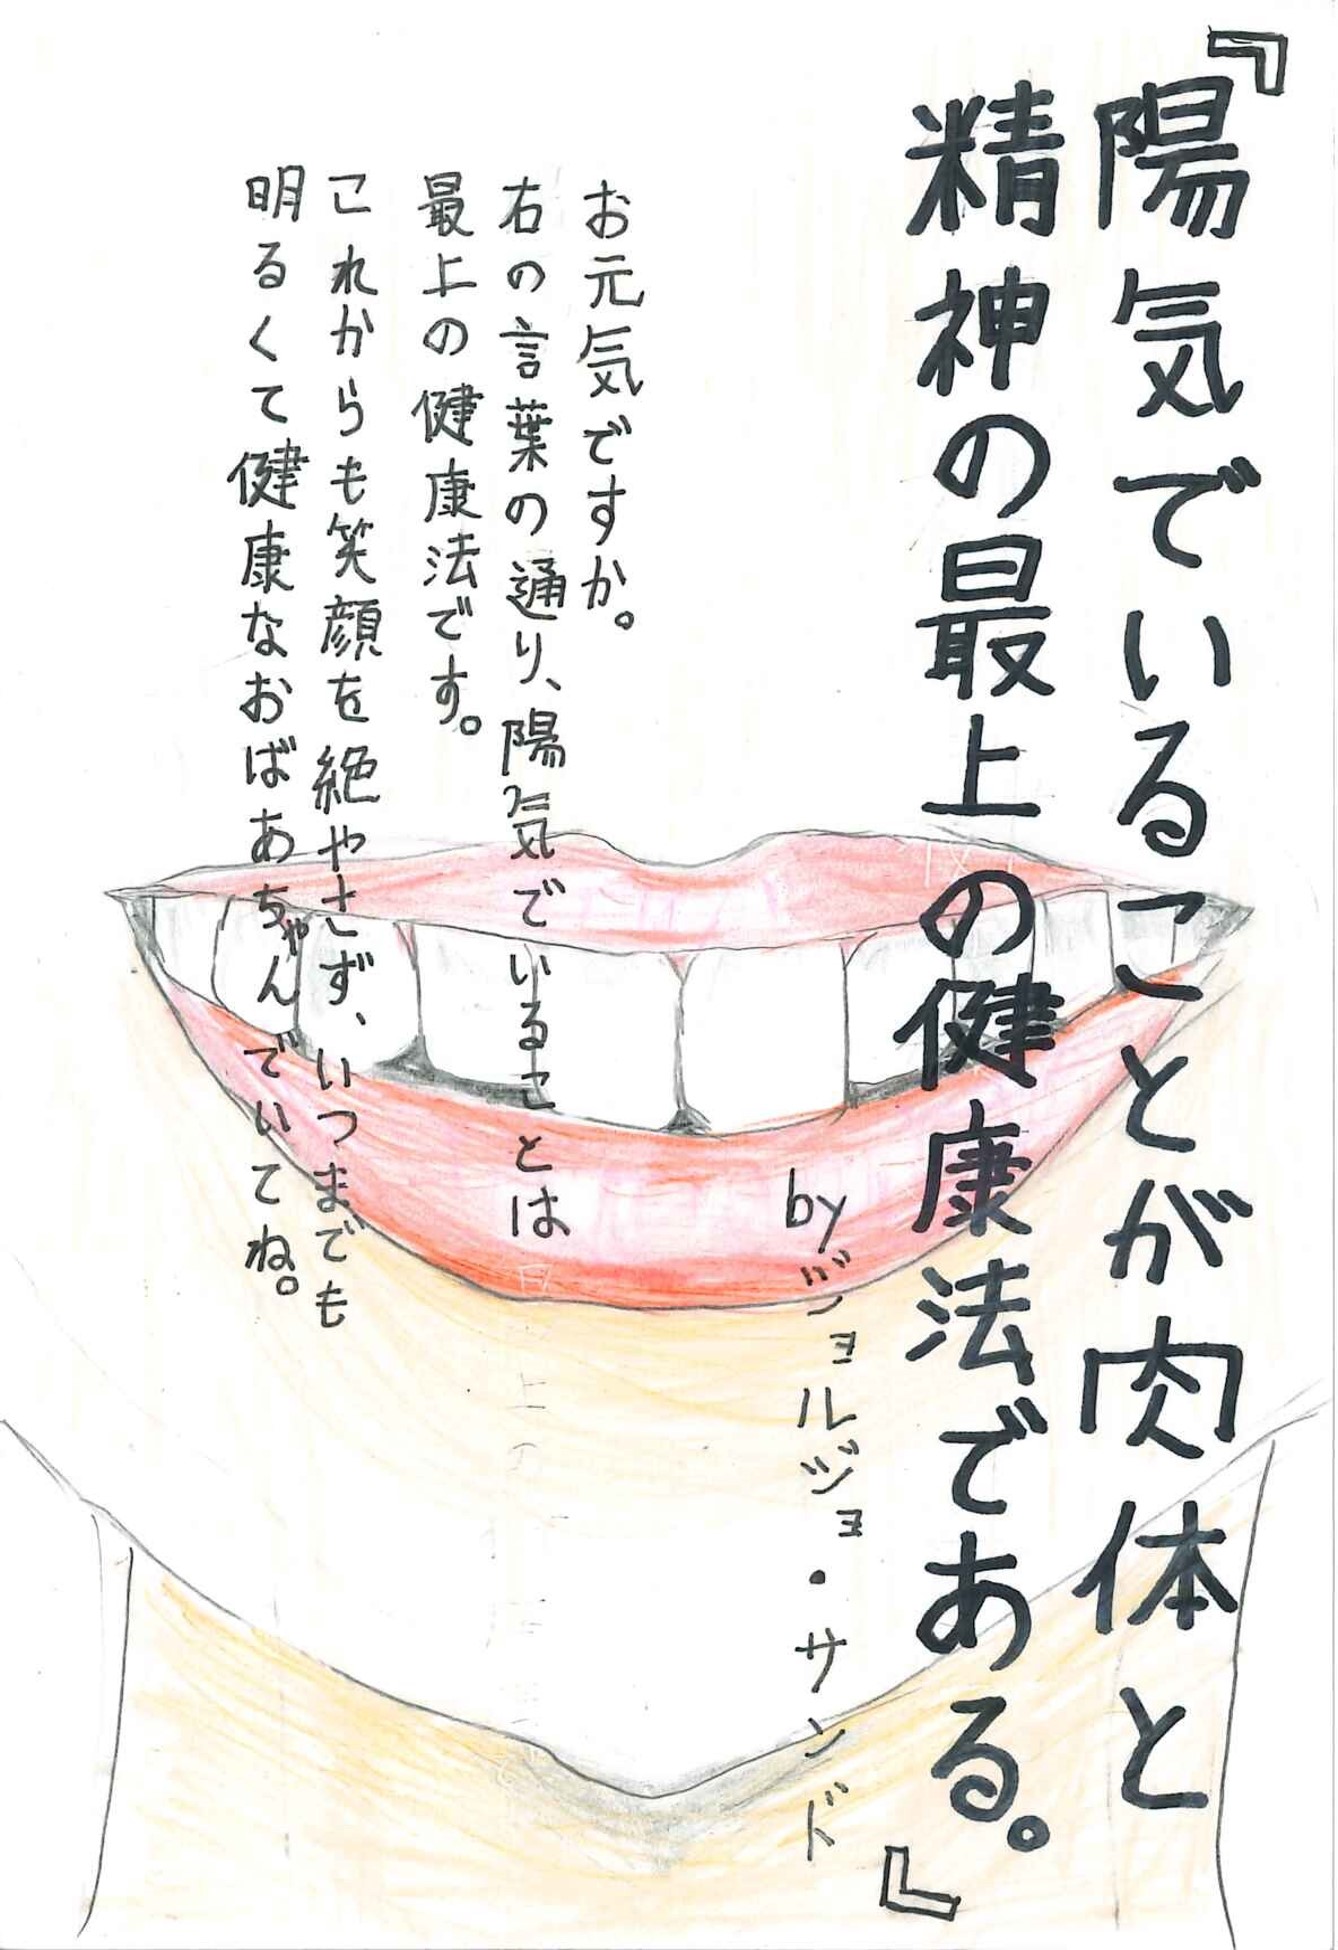 『陽気でいることが肉体と
精神の最上の健康法である。』
byジョルジョ・サンド
お元気ですか。
右の言葉の通り、陽気でいることは
最上の健康法です。
これからも笑顔を絶やさず、いつまでも
明るくて健康なおばあちゃんでいてね。